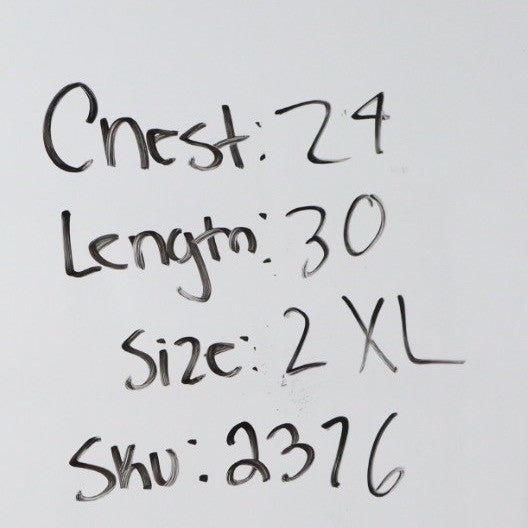 Chest: 24
Length: 30
Size: 2XL
Sku: 2376